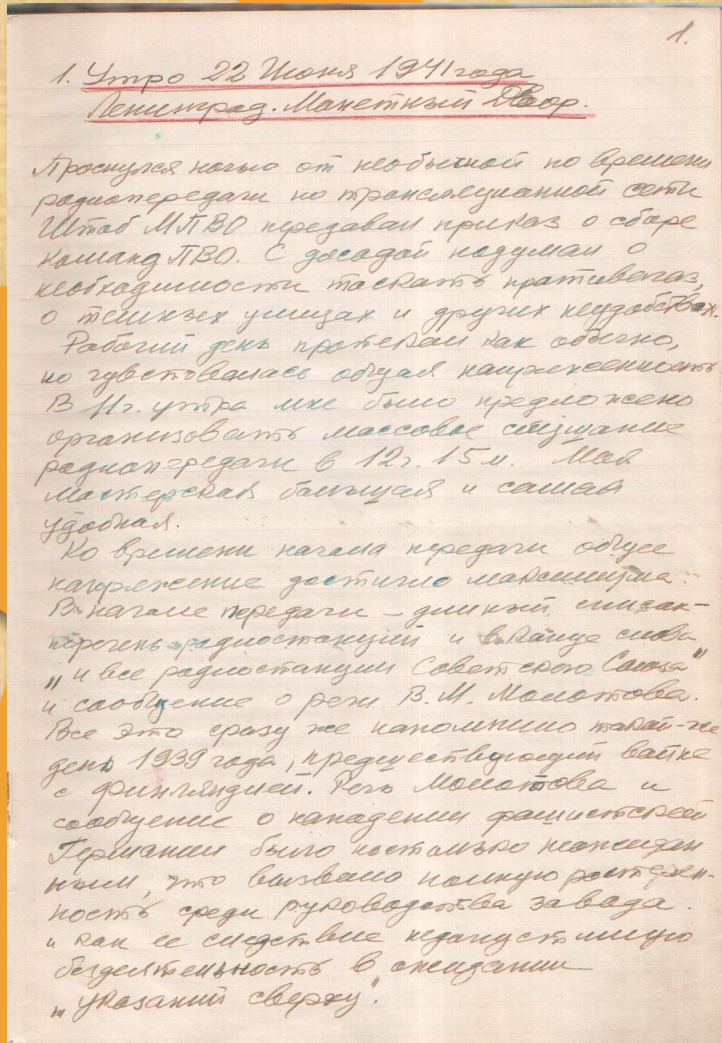 1.
1. Утро 22 Июня 1941 года
Ленинград. Монетный Двор.
Проснулся ночью от необычной по времени
радиопередачи по трансляционной сети
Штаб МПВО передавал приказ о сборе
команд ПВО. С досадой подумал о
необходимости таскать противогаз,
о темных улицах и других неудобствах.
Рабочий день протекал как обычно,
но чувствовалась общая напряженность
В 11 ч. утра мне было предложено
организовать массовое слушание
радиопередачи в 12 ч. 15 м. Моя
мастерская большая и самая
удобная.
Ко времени начала передачи общее
напряжение достигло максимума.
В начале передачи – длинный список-
перечень радиостанций и в конце слова
„и все радиостанции Советского Союза"
и сообщение о речи В. М. Молотова.
Все это сразу же напомнило такой-же
день 1939 года, предшествующий войне
с Финляндией. Речь Молотова и
сообщение о нападении фашистской
Германии было настолько неожидан
ным, что вызвало полную растерян-
ность среди руководства завода.
и как ее следствие недопустимую
бездеятельность в ожидании
„указаний сверху".